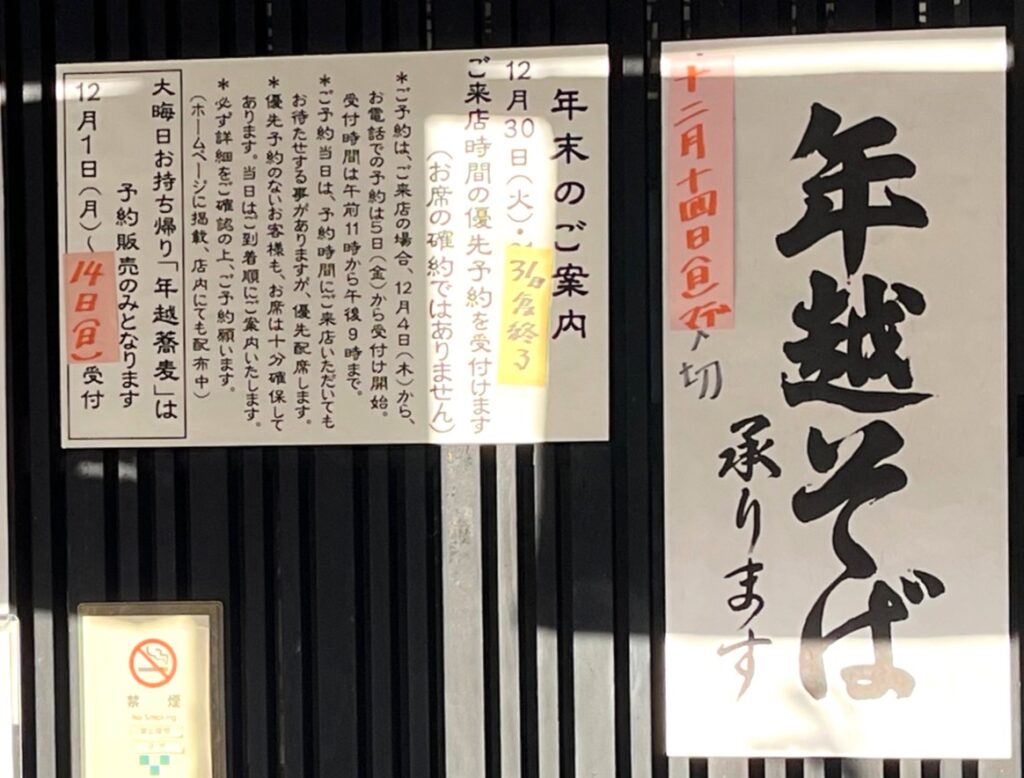 年越そば
承ります
十二月十四日(日)〆切
年末のご案内
12月30日(火)・
31日各終了
ご来店時間の優先予約を受付けます
(お席の確約ではありません)
*ご予約は、ご来店の場合、12月4日(木)から、
お電話での予約は5日(金)から受付け開始。
受付時間は午前11時から午後9時まで。
*ご予約当日は、予約時間にご来店いただいても
お待たせする事がありますが、優先配席します。
*優先予約のないお客様も、お席は十分確保して
あります。当日はご到着順にご案内いたします。
*必ず詳細をご確認の上、ご予約願います。
(ホームページに掲載、店内にても配布中)
大晦日お持ち帰り「年越蕎麦」は
予約販売のみとなります
12月1日(月)〜14日(日)受付
禁煙
No Smoking